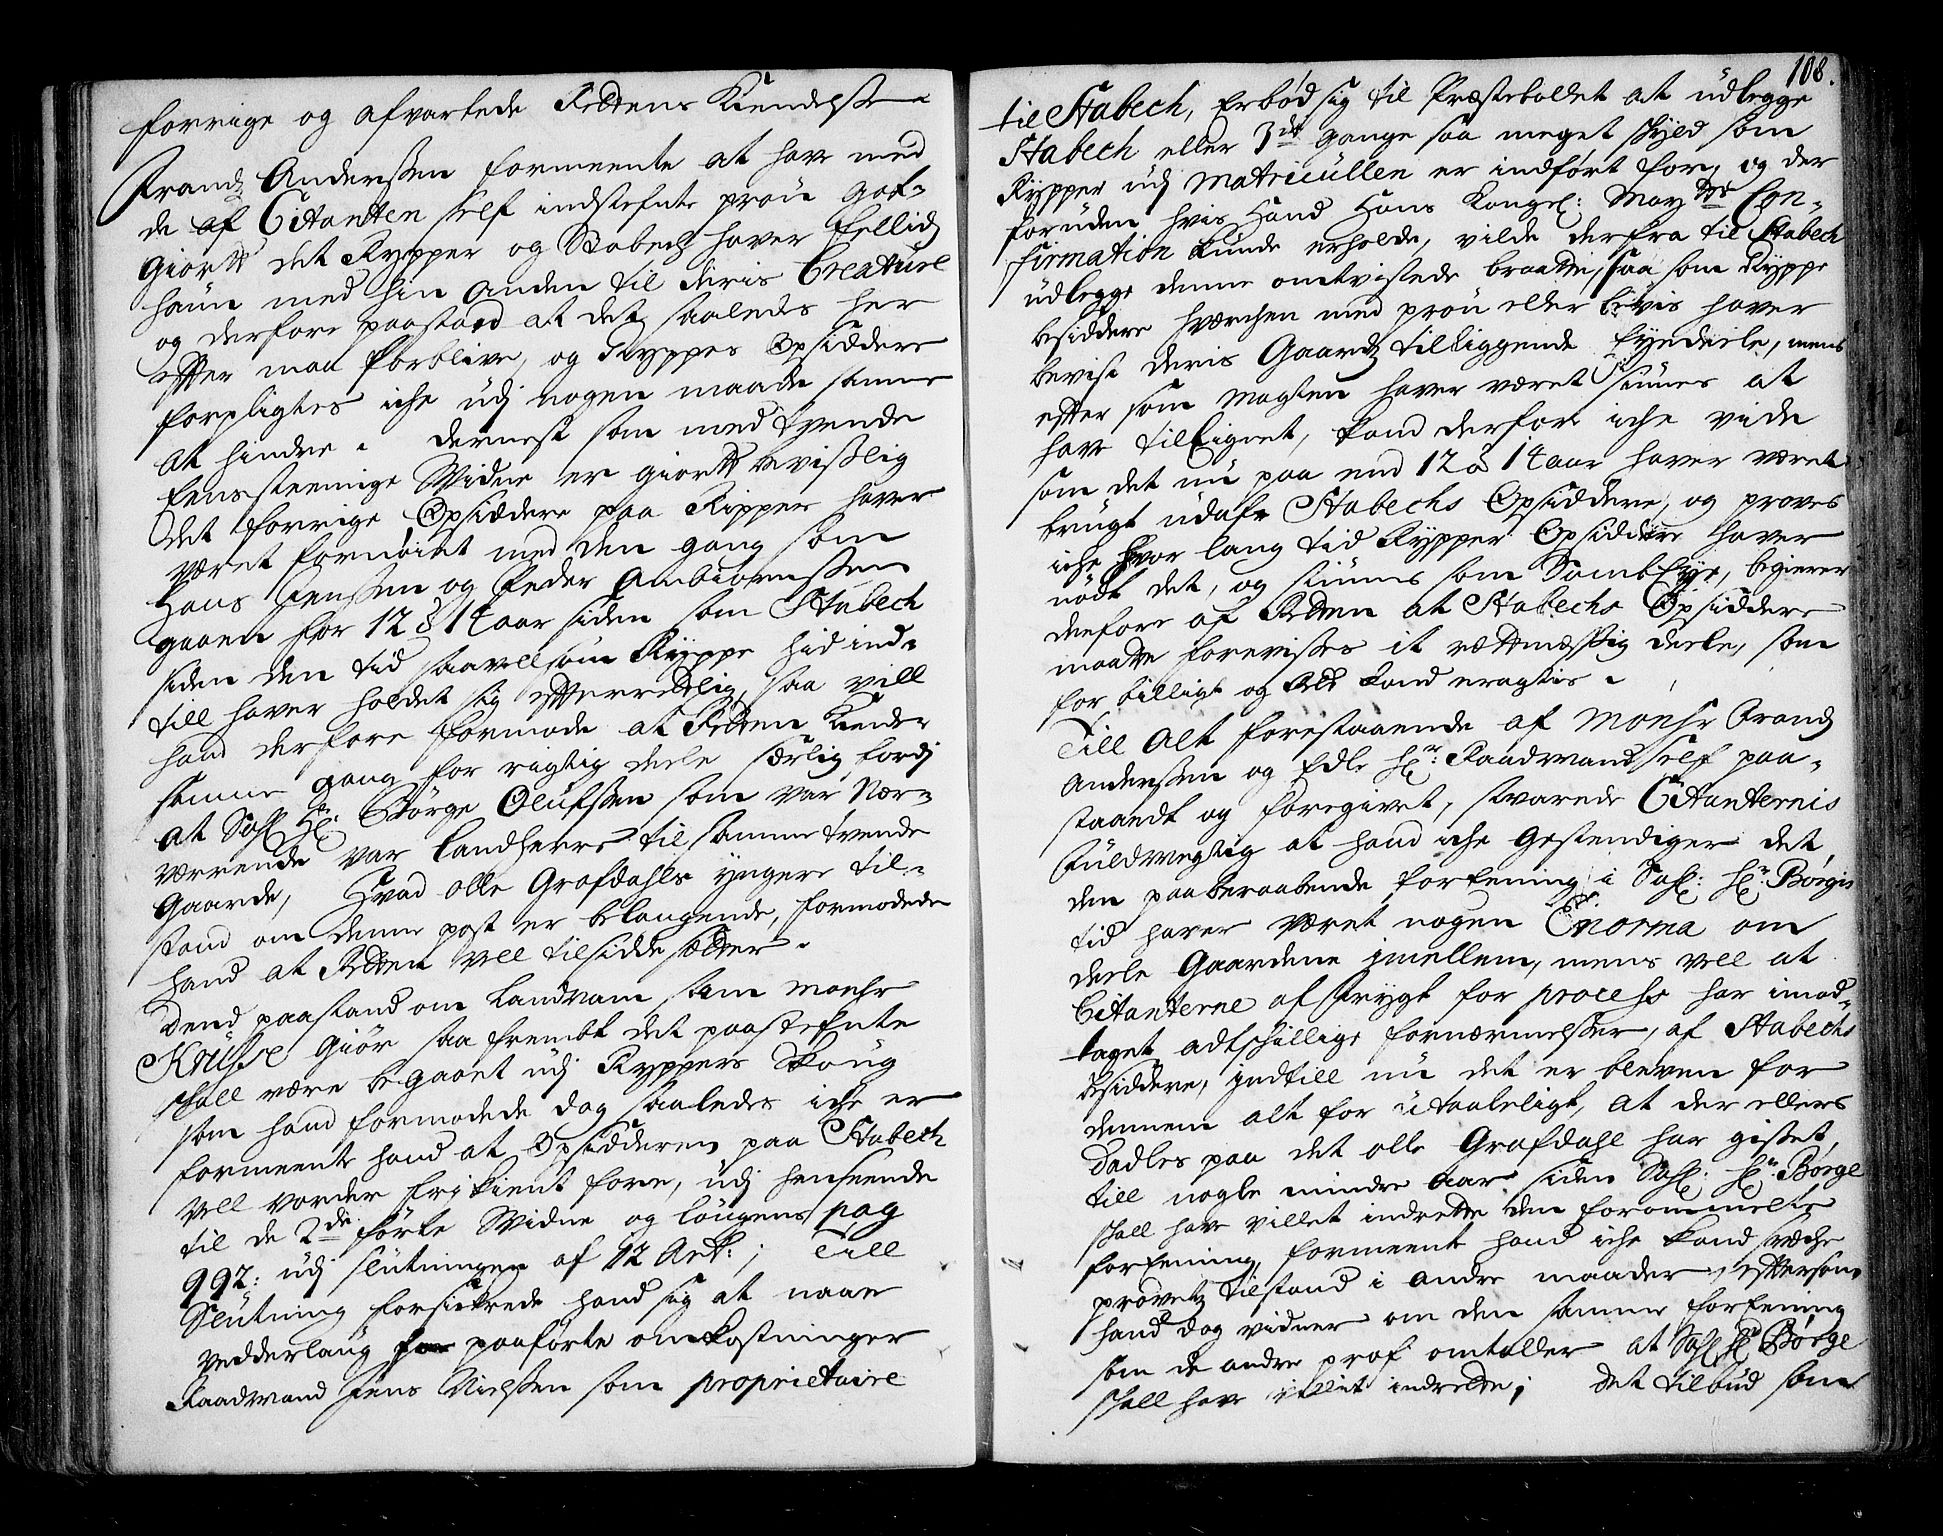 forrige og afvartede Rettens Kiendelse
Frandz Anderssen formeente at have med
de af Citanten self indstefnte prou got-
giort det Rypper og Stabech haver fellidz
hafn med hin anden til deris Creature
og derfore paastaod at det saaledes her
effter maa forblive, og Ryppes Opsiddere
forpligtes iche udj nogen maade samme
at hindre. dernest som med tvende
eensstemmige Widne er giort bevisslig
det forrige Opsiddere paa Ripper haver
været fornøiet med den gang som
Hans Jenssen og Peder Ambiørnssen
gaaen for 12 à 14 aar siden som Stabech
siden den tid saavelsom Ryppe hid ind-
till haver holdet sig effterrettlig, saa vill
hand derfore formode at Retten kiender
samme gang for rigtig deele særlig fordj
at Sahl Hr: Børge Olufssen som var Nær-
værende var Landherre til samme tvende
Gaarde, Hvad Olle Grafdahls yngere til-
stand om denne post er belangende, formodede
hand at Retten vell tilsidde sætter.
Dend paastand om Landnam som Monsr
Kruse Giør saa fremt det paastefnte
skall være begaaet udj Ryppers Skoug
som hand formodede dog saaledes iche er
formeente hand at Opsidderen paa Stabech
vell vorder frikient fore, udj henseende
til de 2de førte Widne og lougens pag
992: udj slutningen af 12 Art: ; Till
Slutning forsickrede hand sig at naae
vedderlaug for paaførte omkostninger
Raadmand Jens Nielssen som proprietaire
108.
til Stabech, Erbød sig til Præstebollet at udlegge
Stabech eller 3de gange saa meget skyld som
Rypper udj Matricullen er indført for, og der
foruden hvis Hand Hans Kongel: Maytts Con-
firmation kunde erholde, vilde derfra til Stabech
udlegge denne omtvistede braatte, saa som Ryppe
besiddere hverchen med prou eller bevis haver
bevist deris Gaardz tilliggende Eyedeele, mens
effter som Magten haver været siunes at
have tilEignet, kand derfor iche vide
som det nu paa end 12 à 14 aar haver været
brugt udaf Stabechs Opsiddere, og proves
iche hvor lang tid Rypper Opsiddere haver
nødt det, og siunes som SambEye, begierer
derfore af Retten at Stabechs Opsiddere
maatte forevisses it rettmæssig deele, som
for billigt og Ret kand eragtes.
Till Alt forestaaende af Monsr Frandz
Anderssen og Edle Hr: Raadmand self paa-
staaedt og foregivet, svarede Citanternis
fuldmegtig at hand iche Gestendiger det
den paaberaabende forEening i Sahl: Hr: Børgis
tid haver været nogen Norma om
deele Gaardene jmellem, mens vell at
Citanterne af frygt for process har imod-
taget adtskillige fornærmelsser, af Stabechs
besiddere, indtill nu det er bleven for
dennem alt for utaaleligt, at der ellers
dadles paa det Olle Grafdahl har gisset,
till nogle mindre aar siden Sahl: Hr: Børge
skall have villet indrette den forommelte
forEening, formeente hand iche kand svæche
provetz tilstand i andre maader, efftersom
hand dog vidner om den samme forEening
som de andre prof omtaller at Sahl Hr Børge
skall have villet indrette; det tilbud som